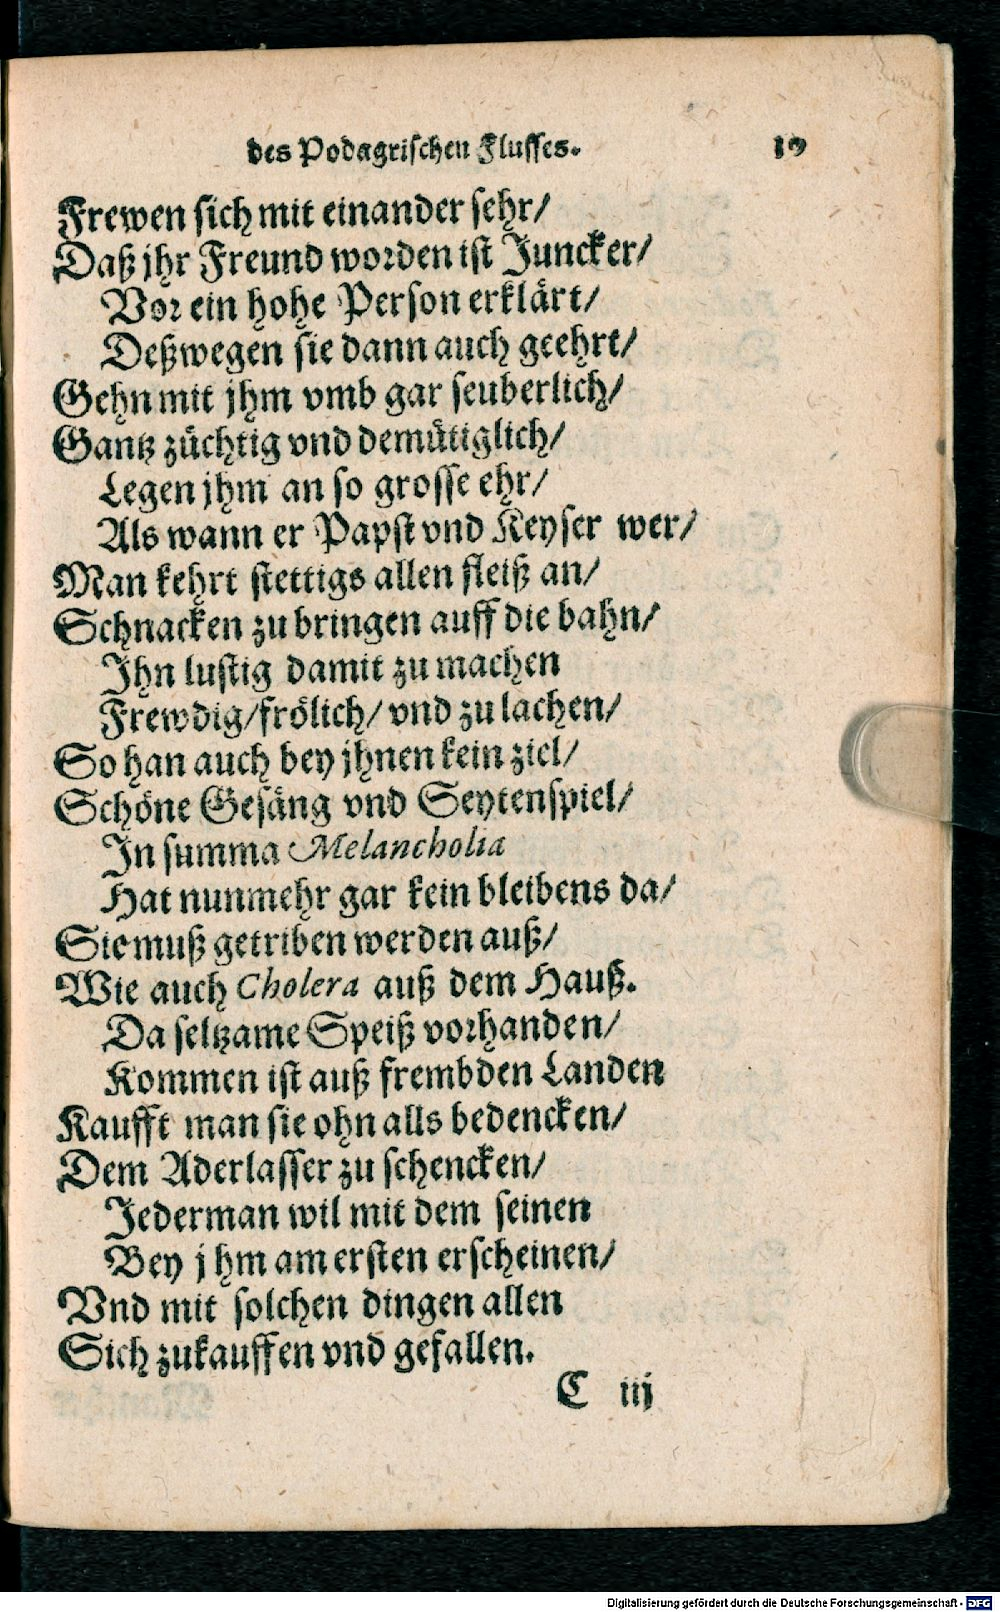 des Podagrischen Flusses. 19
Frewen sich mit einander sehr/
Daß jhr Freund worden ist Juncker/
Vor ein hohe Person erklärt/
Deßwegen sie dann auch geehrt/
Gehn mit jhm vmb gar seuberlich/
Gantz züchtig vnd demütiglich/
Legen jhm an so grosse ehr/
Als wann er Papst vnd Keyser wer/
Man kehrt stettigs allen fleiß an/
Schnacken zu bringen auff die bahn/
Ihn lustig damit zu machen
Frewdig/frölich/ vnd zu lachen/
So han auch bey jhnen kein ziel/
Schöne Gesäng vnd Seytenspiel/
In summa Melancholia
Hat nunmehr gar kein bleibens da/
Sie muß getriben werden auß/
Wie auch Cholera auß dem Hauß.
Da seltzame Speiß vorhanden/
Kommen ist auß frembden Landen
Kaufft man sie ohn alls bedencken/
Dem Aderlasser zu schencken/
Jederman wil mit dem seinen
Bey jhm am ersten erscheinen/
Vnd mit solchen dingen allen
Sich zukauffen vnd gefallen.
C iij
Digitalisierung gefördert durch die Deutsche Forschungsgemeinschaft - DFG